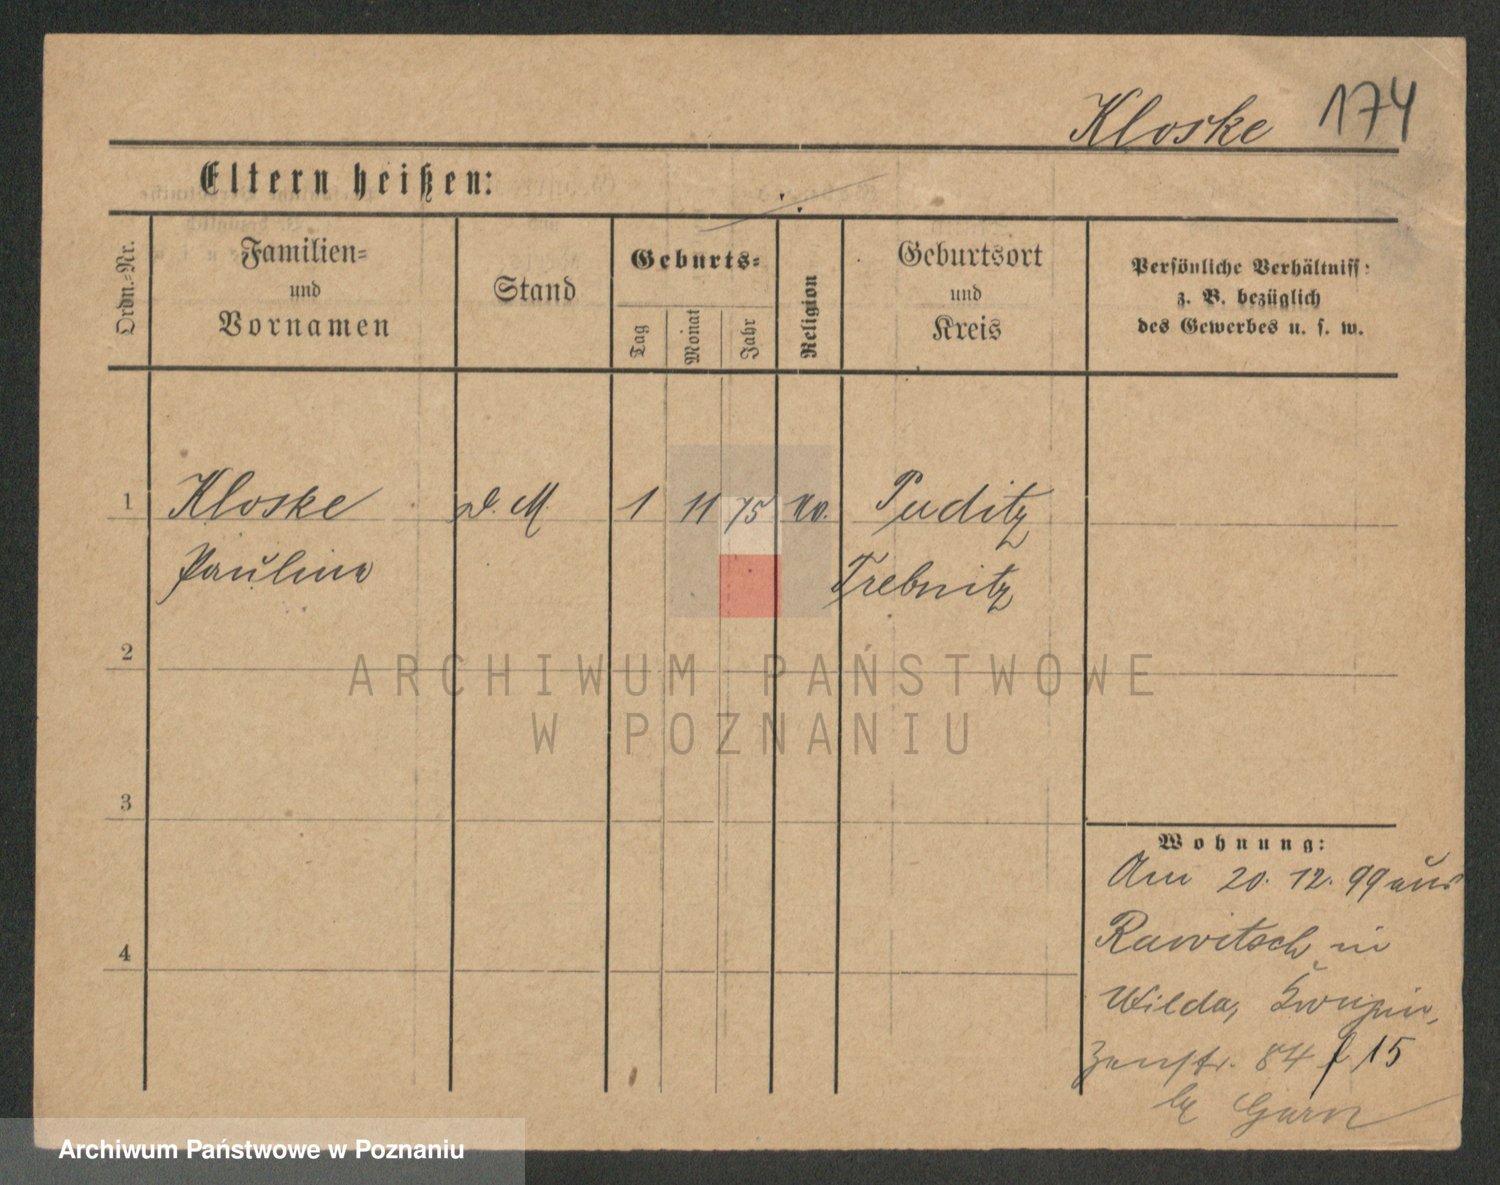 Kloske 174
Eltern heißen:
Ordn.-Nr.
Familien-
und
Vornamen
Stand
Geburts-
Tag
Monat
Jahr
Religion
Geburtsort
und
Kreis
Persönliche Verhältniss:
z. B. bezüglich
des Gewerbes u. s. w.
1 Kloske D. M. 1 11 75 Puditz
Pauline Trebnitz
2
3
4
ARCHIWUM PAŃSTWOWE
W POZNANIU
Wohnung:
Am 20. 12. 99 aus
Rawitsch in
Wilda,
84 15
Archiwum Państwowe w Poznaniu